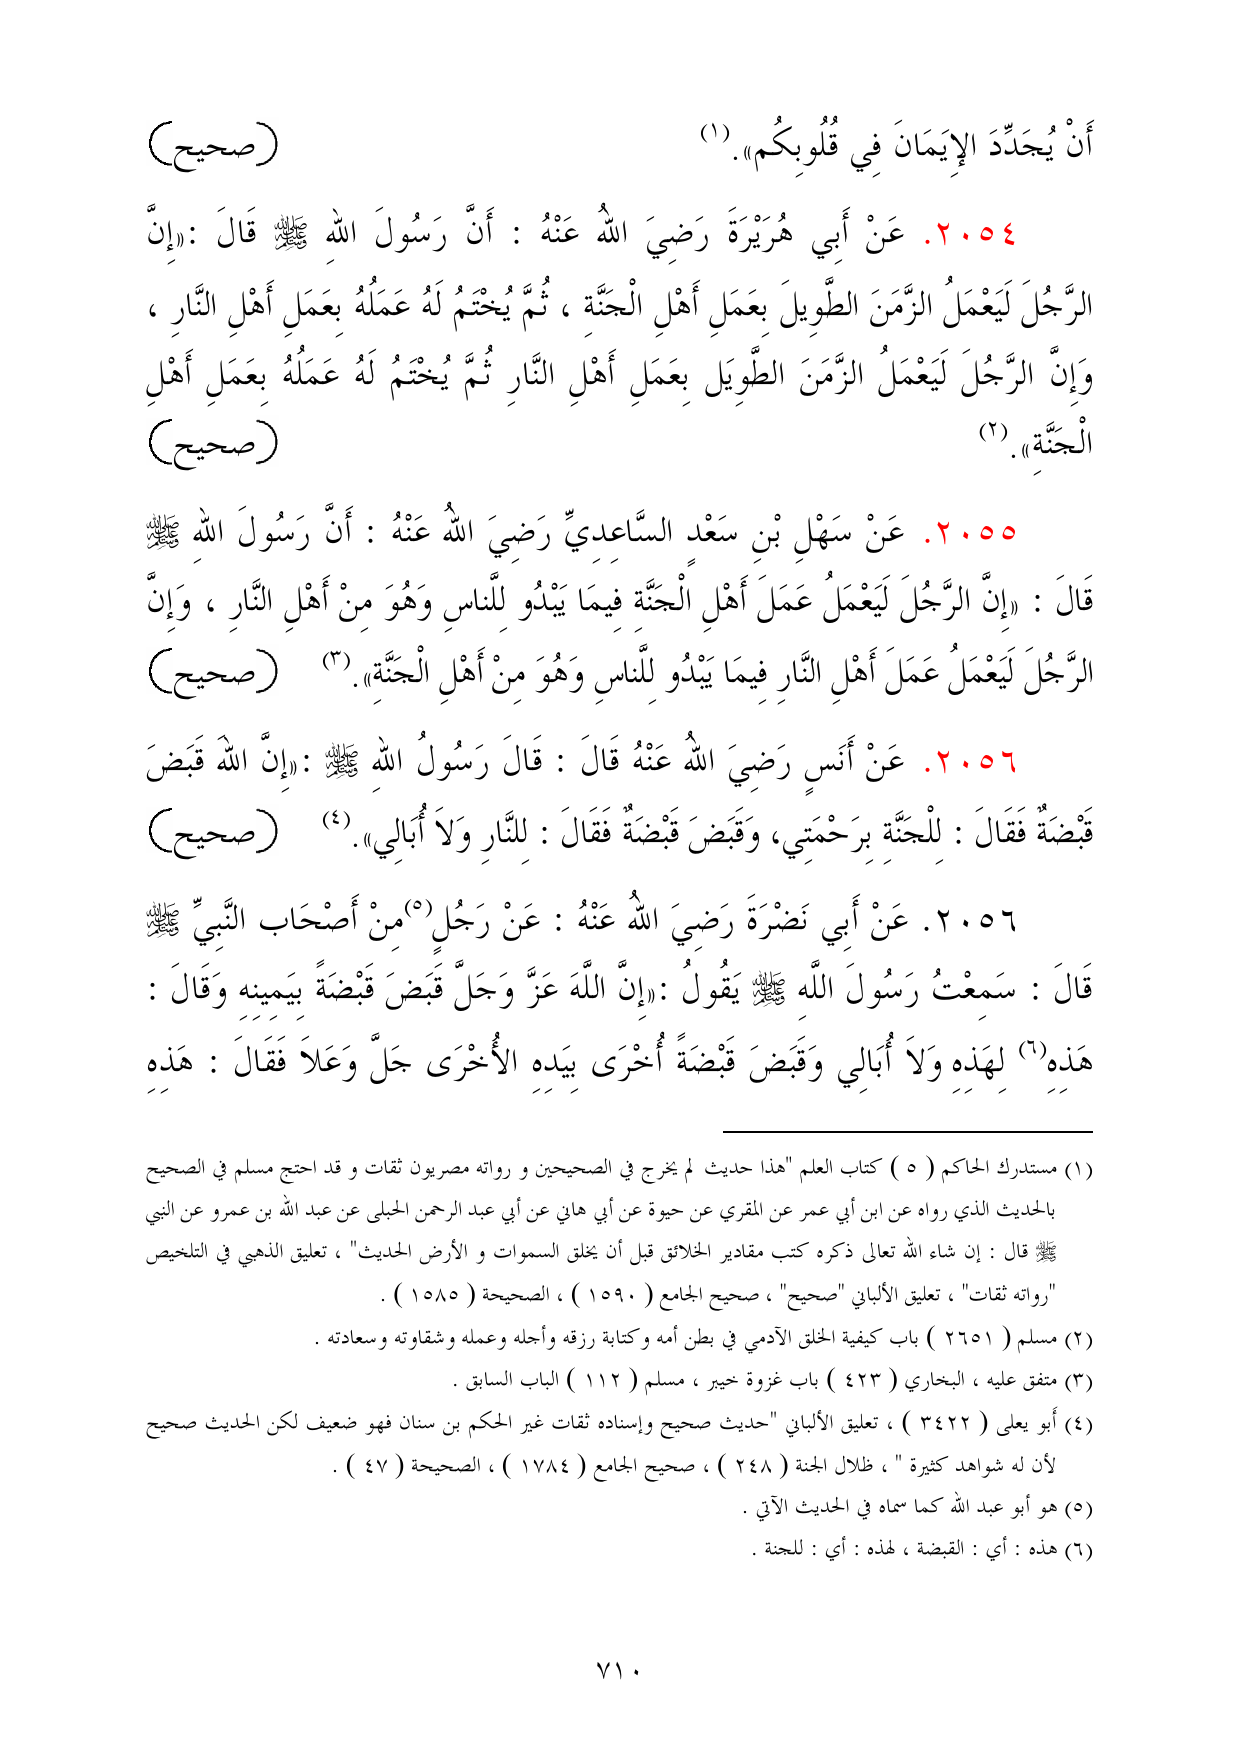 أَنْ يُجَدِّدَ الإِيَمَانَ فِي قُلُوبِكُم». (١) (صحيح)
٢٠٥٤. عَنْ أَبِي هُرَيْرَةَ رَضِيَ اللهُ عَنْهُ : أَنَّ رَسُولَ اللهِ ﷺ قَالَ :«إِنَّ
الرَّجُلَ لَيَعْمَلُ الزَّمَنَ الطَّوِيلَ بِعَمَلِ أَهْلِ الْجَنَّةِ ، ثُمَّ يُخْتَمُ لَهُ عَمَلُهُ بِعَمَلِ أَهْلِ النَّارِ ،
وَإِنَّ الرَّجُلَ لَيَعْمَلُ الزَّمَنَ الطَّوِيَل بِعَمَلِ أَهْلِ النَّارِ ثُمَّ يُخْتَمُ لَهُ عَمَلُهُ بِعَمَلِ أَهْلِ
الْجَنَّةِ». (٢) (صحيح)
٢٠٥٥. عَنْ سَهْلِ بْنِ سَعْدٍ السَّاعِدِيِّ رَضِيَ اللهُ عَنْهُ : أَنَّ رَسُولَ اللهِ ﷺ
قَالَ : «إِنَّ الرَّجُلَ لَيَعْمَلُ عَمَلَ أَهْلِ الْجَنَّةِ فِيمَا يَبْدُو لِلَّناسِ وَهُوَ مِنْ أَهْلِ النَّارِ ، وَإِنَّ
الرَّجُلَ لَيَعْمَلُ عَمَلَ أَهْلِ النَّارِ فِيمَا يَبْدُو لِلَّناسِ وَهُوَ مِنْ أَهْلِ الْجَنَّةِ». (٣) (صحيح)
٢٠٥٦. عَنْ أَنَسٍ رَضِيَ اللهُ عَنْهُ قَالَ : قَالَ رَسُولُ اللهِ ﷺ :«إِنَّ اللهَ قَبَضَ
قَبْضَةٌ فَقَالَ : لِلْجَنَّةِ بِرَحْمَتِي، وَقَبَضَ قَبْضَةٌ فَقَالَ : لِلنَّارِ وَلاَ أُبَالِي». (٤) (صحيح)
٢٠٥٦. عَنْ أَبِي نَضْرَةَ رَضِيَ اللهُ عَنْهُ : عَنْ رَجُلٍ(٥)مِنْ أَصْحَاب النَّبِيِّ ﷺ
قَالَ : سَمِعْتُ رَسُولَ اللَّهِ ﷺ يَقُولُ :«إِنَّ اللَّهَ عَزَّ وَجَلَّ قَبَضَ قَبْضَةً بِيَمِينِهِ وَقَالَ :
هَذِهِ(٦) لِهَذِهِ وَلاَ أُبَالِي وَقَبَضَ قَبْضَةً أُخْرَى بِيَدِهِ الأُخْرَى جَلَّ وَعَلاَ فَقَالَ : هَذِهِ
(١) مستدرك الحاكم ( ٥ ) كتاب العلم "هذا حديث لم يخرج في الصحيحين و رواته مصريون ثقات و قد احتج مسلم في الصحيح
بالحديث الذي رواه عن ابن أبي عمر عن المقري عن حيوة عن أبي هاني عن أبي عبد الرحمن الحبلى عن عبد الله بن عمرو عن النبي
ﷺ قال : إن شاء الله تعالى ذكره كتب مقادير الخلائق قبل أن يخلق السموات و الأرض الحديث" ، تعليق الذهبي في التلخيص
"رواته ثقات" ، تعليق الألباني "صحيح" ، صحيح الجامع ( ١٥٩٠ ) ، الصحيحة ( ١٥٨٥ ) .
(٢) مسلم ( ٢٦٥١ ) باب كيفية الخلق الآدمي في بطن أمه وكتابة رزقه وأجله وعمله وشقاوته وسعادته .
(٣) متفق عليه ، البخاري ( ٤٢٣ ) باب غزوة خيبر ، مسلم ( ١١٢ ) الباب السابق .
(٤) أبو يعلى ( ٣٤٢٢ ) ، تعليق الألباني "حديث صحيح وإسناده ثقات غير الحكم بن سنان فهو ضعيف لكن الحديث صحيح
لأن له شواهد كثيرة " ، ظلال الجنة ( ٢٤٨ ) ، صحيح الجامع ( ١٧٨٤ ) ، الصحيحة ( ٤٧ ) .
(٥) هو أبو عبد الله كما سماه في الحديث الآتي .
(٦) هذه : أي : القبضة ، لهذه : أي : للجنة .
٧١٠